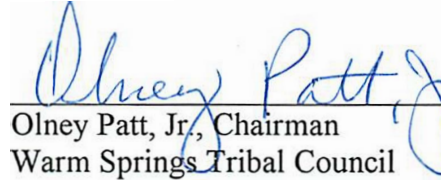 Olney Patt, Jr.
Olney Patt, Jr., Chairman
Warm Springs Tribal Council